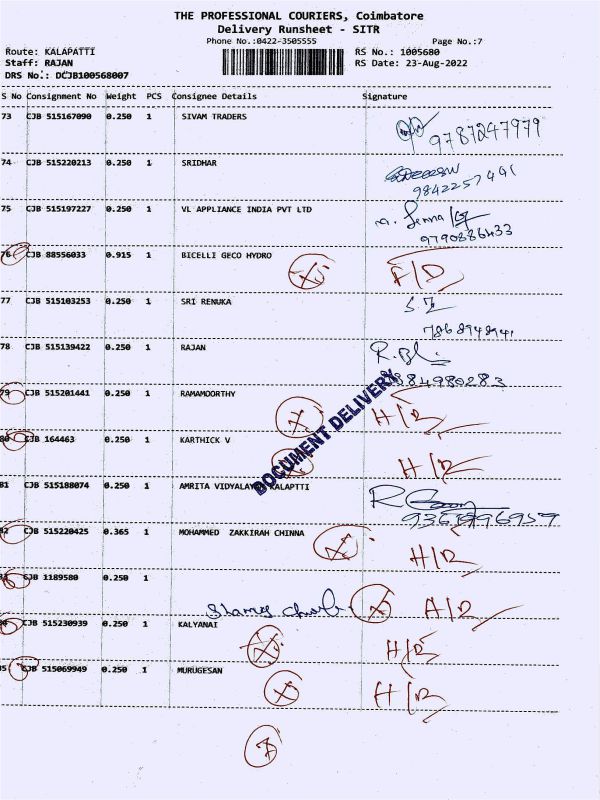 THE PROFESSIONAL COURIERS, Coimbatore
Delivery Runsheet - SITR
Phone No.:0422-3505555 Page No.:7
Route: KALAPATTI RS No.: 1005680
Staff: RAJAN RS Date: 23-Aug-2022
DRS No.: DCJB100568007
S No Consignment No Weight PCS Consignee Details Signature
73 CJB 515167090 0.250 1 SIVAM TRADERS
9787247979
74 CJB 515220213 0.250 1 SRIDHAR
9842257491
75 CJB 515197227 0.250 1 VL APPLIANCE INDIA PVT LTD
9790886433
76 CJB 88556033 0.915 1 BICELLI GECO HYDRO
77 CJB 515103253 0.250 1 SRI RENUKA
7868948941
78 CJB 515139422 0.250 1 RAJAN
884980283
79 CJB 515201441 0.250 1 RAMAMOORTHY
80 CJB 164463 0.250 1 KARTHICK V
DOCUMENT DELIVERY
81 CJB 515188074 0.250 1 AMRITA VIDYALAYAM KALAPTTI
82 CJB 515220425 0.365 1 MOHAMMED ZAKKIRAH CHINNA
CJB 1189580 0.250 1
CJB 515230939 0.250 1 KALYANAI
CJB 515069949 0.250 1 MURUGESAN
7